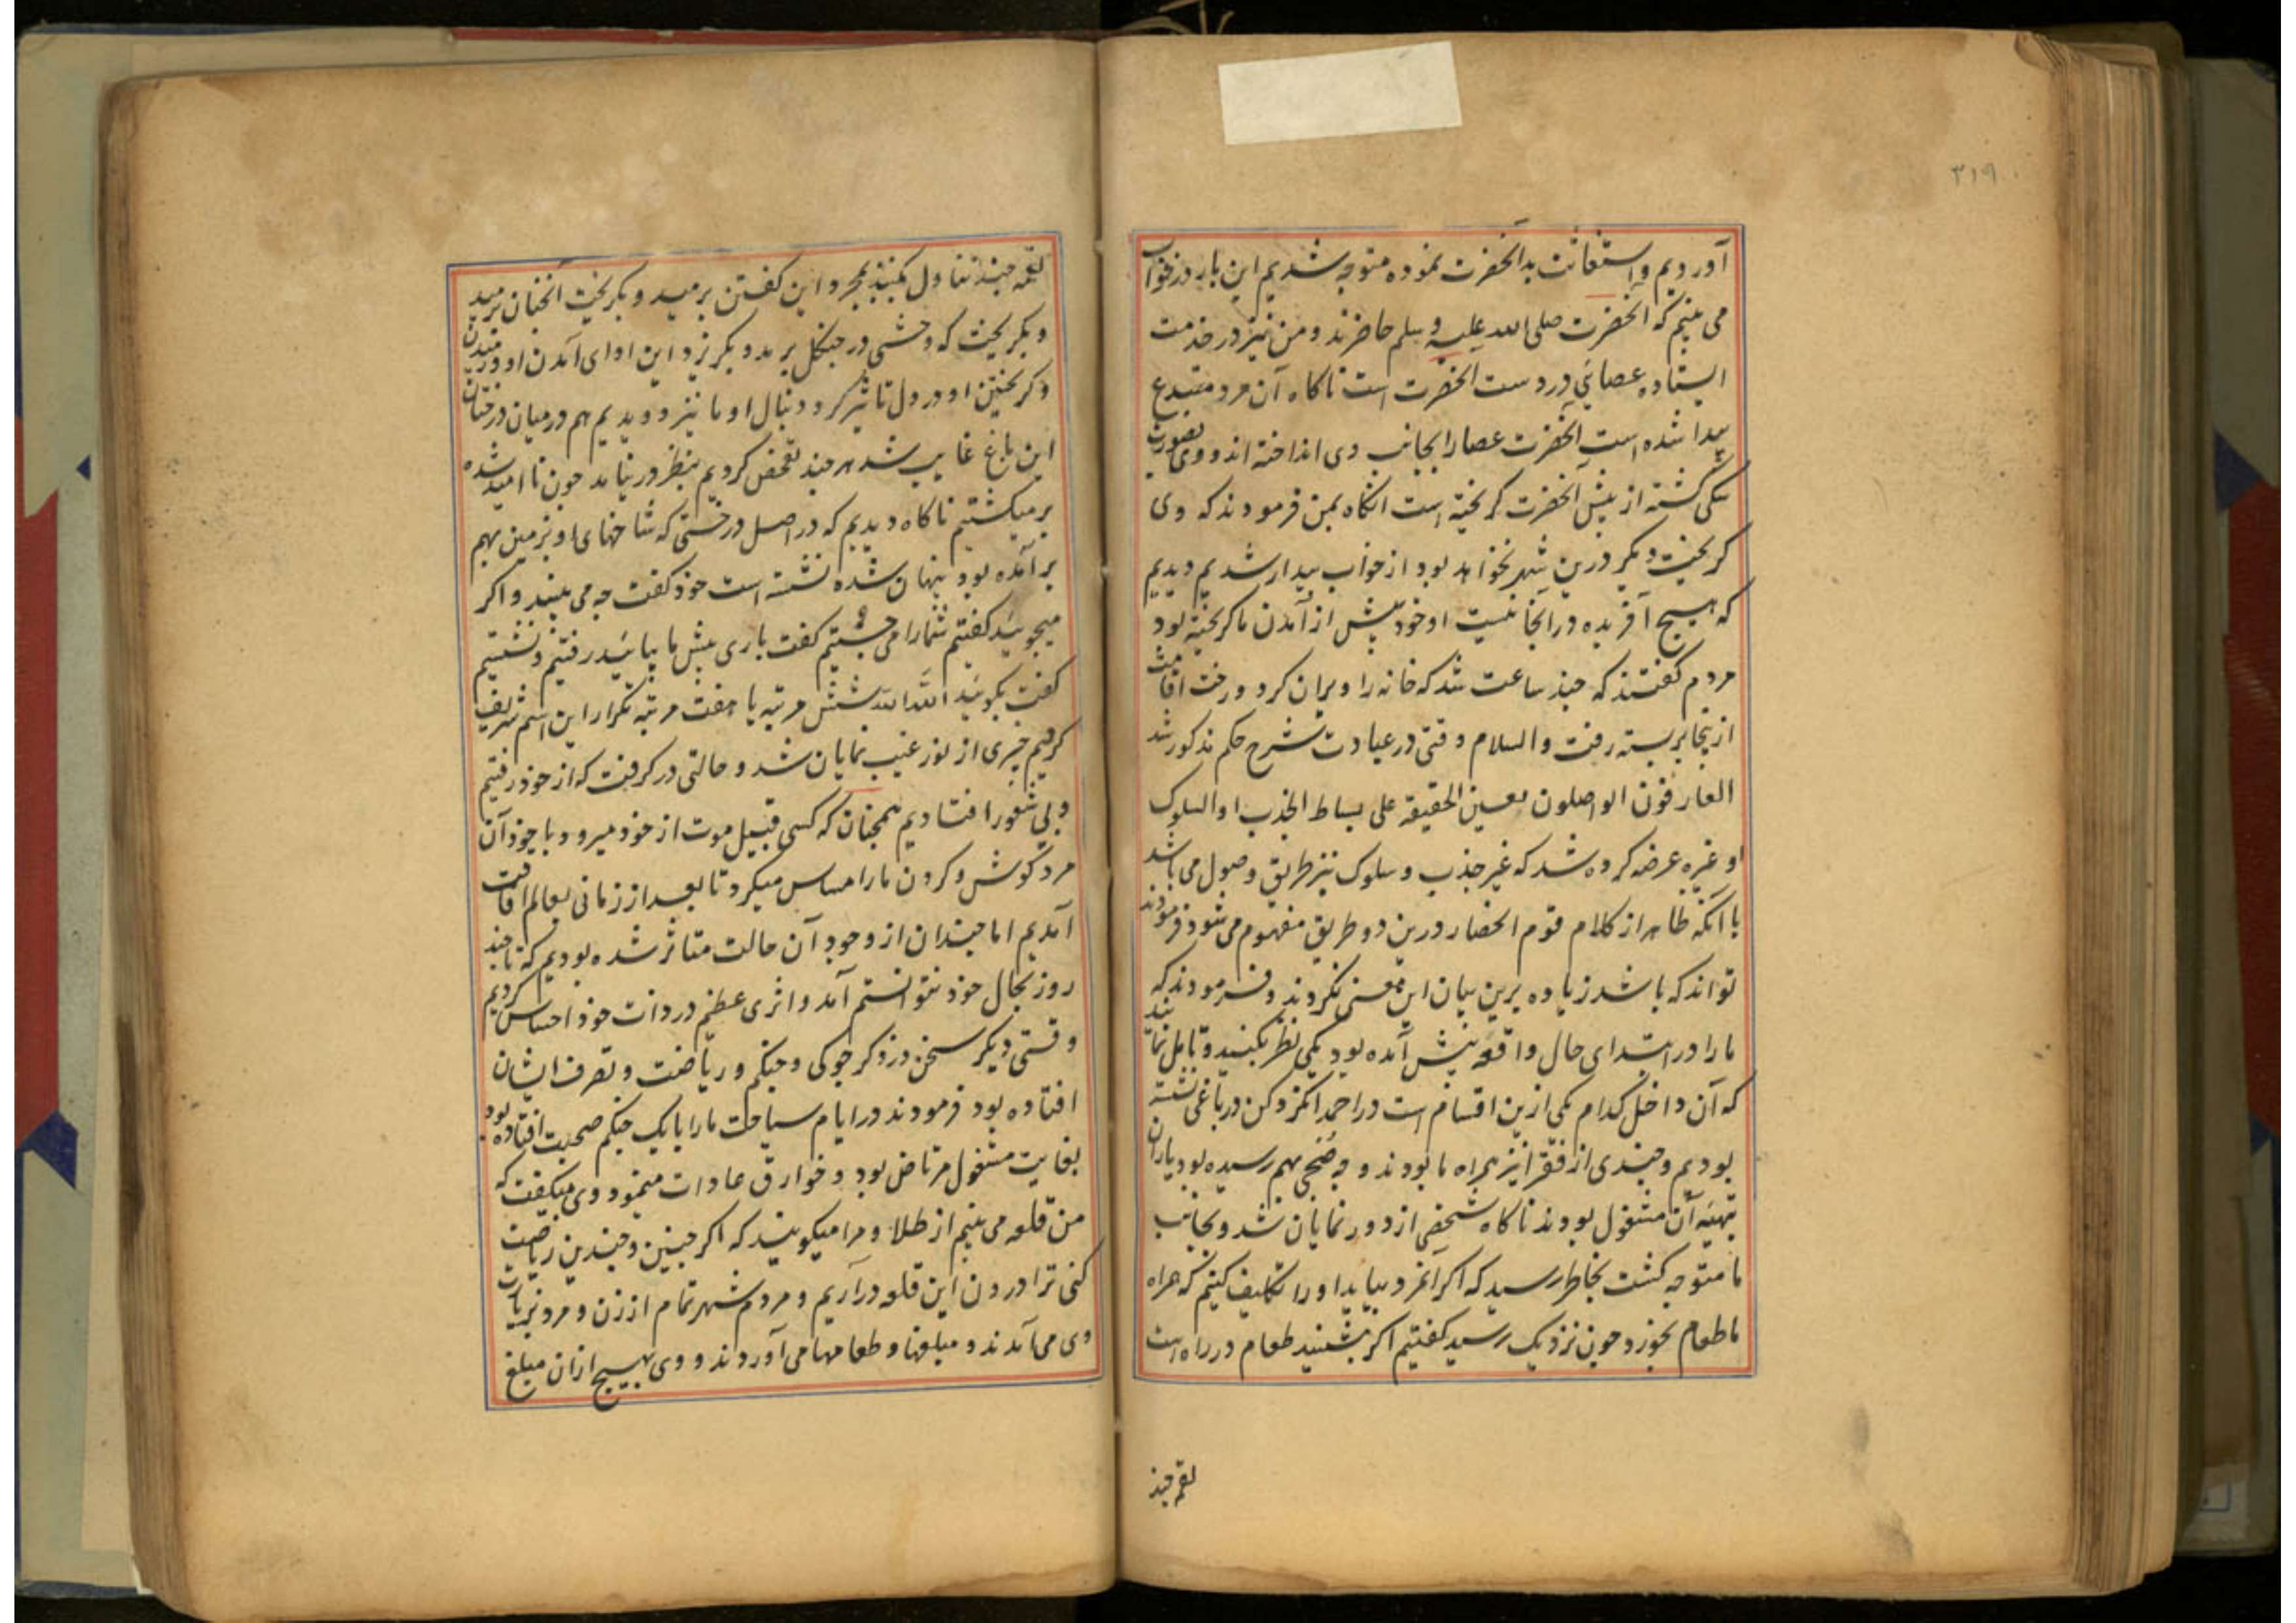 ۳۱۹
آوردیم و استغاثت بدآنحضرت نموده متوجه شدیم این بار در خواب
می بینم که آنحضرت صلی الله علیه و سلم حاضرند و من نیز در خدمت
ایستاده عصائی در دست آنحضرت است ناکاه آن مرد مبتدع
پیدا شده است آنحضرت عصا را بجانب وی انداخته اند و وی بصورت
سکی کشته از پیش آنحضرت کریخته است انکاه بمن فرمودند که وی
کریخت دیکر درین شهر نخواهد بود از خواب بیدار شدیم دیدیم
که هیچ آفریده در آنجا نیست او خود پیش از آمدن ما کریخته بود
مردم کفتند که چند ساعت شد که خانه را ویران کرد و رخت اقامت
ازینجا بربسته رفت والسلام وقتی در عبادت شرح حکم مذکور شد
العارفون الواصلون بعین الحقیقة علی بساط الجذب او السلوک
او غیره عرضه کرده شد که غیر جذب و سلوک نیز طریق وصول می باشد
با آنکه ظاهر از کلام قوم انحصار درین دو طریق مفهوم می شود فرمودند
تواند که باشد زیاده برین بیان این معنی نکردند و فرمودند که
ما را در ابتدای حال واقعه پیش آمده بود یکی نظر بکنید و تامل نمائید
که آن داخل کدام یکی ازین اقسام است در احمد انکر دکن در باغی نشسته
بودیم و چندی از فقرا نیز همراه ما بودند و چه ضحی بهم رسیده بود یاران
بتهیئه آن مشغول بودند ناکاه شخصی از دور نمایان شد و بجانب
ما متوجه کشت بخاطر رسید که اکر آنمرد بیاید او را تکلیف کنیم که همراه
ما طعام بخورد چون نزدیک رسید کفتیم اکر بنشنید طعام در راه است
لقمه چند
لقمه چند تناول بکنید بمجرد این کفتن برمید و بکریخت آنچنان برمید
و بکریخت که وحشی در جنکل برمد و بکریزد این ادای آمدن او و رمیدن
و کریختن او در دل تاثیر کرد دنبال او ما نیز دویدیم هم در میان درختان
این باغ غایب شد هر چند تفحص کردیم بنظر در نیامد چون نا امید شده
برمیکشتیم ناکاه دیدیم که در اصل درختی که شاخهای او بزمین بهم
برآمده بود پنهان شده نشسته است خود کفت چه می بینید و اکر
میجوئید کفتیم شما را می جستیم کفت باری پیش ما بیائید رفتیم و نشستیم
کفت بکوئید الله الله شش مرتبه یا هفت مرتبه تکرار این اسم شریف
کردیم چیزی از نور غیب نمایان شد و حالتی در کرفت که از خود رفتیم
و بی شعور افتادیم همچنان که کسی قبیل موت از خود میرود با خود آن
مرد کوش و کردن ما را مساس میکرد تا بعد از زمانی بعالم افاقت
آمدیم اما چندان از وجود آن حالت متاثر شده بودیم که تا چند
روز بحال خود نتوانستم آمد و اثری عظیم در ذات خود احساس کردیم
وقتی دیکر سخن در ذکر جوکی و جنکم و ریاضت و تصرف ایشان
افتاده بود فرمودند در ایام سیاحت ما را با یک جنکم صحبت افتاده بود
بغایت مشغول مرتاض بود و خوارق عادات مینمود وی میکفت که
من قلعه می بینم از طلا و مرا میکویند که اکر چنین و چندین ریاضت
کنی ترا درون این قلعه درآریم و مردم شهر تمام از زن و مرد بزیارت
وی می آمدند و مبلغها و طعامها می آوردند و وی هیچ ازان مبلغ